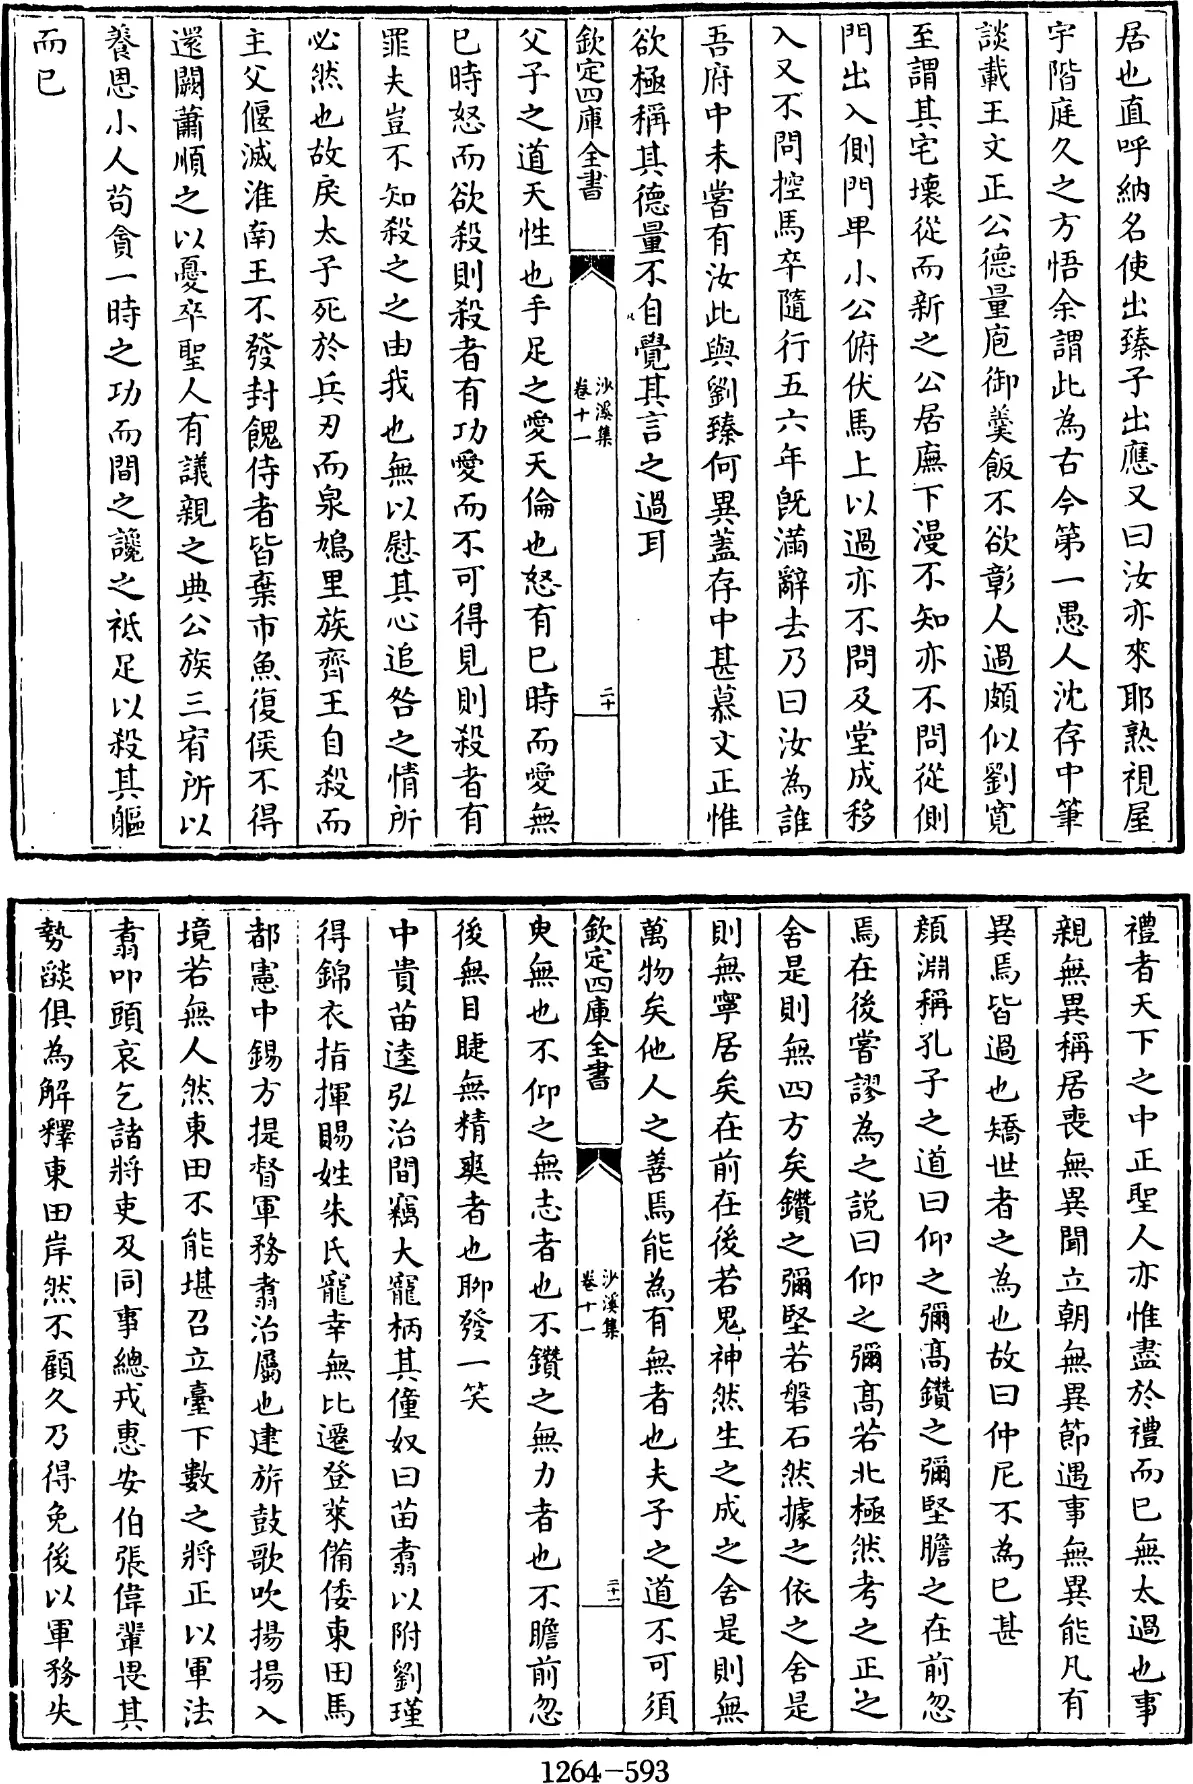 居也直呼納名使出臻子出應又曰汝亦來耶熟視屋
宇階庭久之方悟余謂此為古今第一愚人沈存中筆
談載王文正公德量庖御羮飯不欲彰人過頗似劉寛
至謂其宅壞從而新之公居廡下漫不知亦不問從側
門出入側門卑小公俯伏馬上以過亦不問及堂成移
入又不問控馬卒隨行五六年旣滿辭去乃曰汝為誰
吾府中未嘗有汝此與劉臻何異蓋存中甚慕文正惟
欲極稱其德量不自覺其言之過耳
欽定四庫全書
沙溪集
卷十一
二十
父子之道天性也手足之愛天倫也怒有已時而愛無
已時怒而欲殺則殺者有功愛而不可得見則殺者有
罪夫豈不知殺之之由我也無以慰其心追咎之情所
必然也故戾太子死於兵刃而泉鳩里族齊王自殺而
主父偃滅淮南王不發封餽侍者皆棄市魚復侯不得
還闕蕭順之以憂卒聖人有議親之典公族三宥所以
養恩小人茍貪一時之功而間之讒之祗足以殺其軀
而已
禮者天下之中正聖人亦惟盡於禮而已無太過也事
親無異稱居喪無異聞立朝無異節遇事無異能凡有
異焉皆過也矯世者之為也故曰仲尼不為已甚
顏淵稱孔子之道曰仰之彌髙鑽之彌堅瞻之在前忽
焉在後嘗謬為之説曰仰之彌髙若北極然考之正之
舍是則無四方矣鑽之彌堅若磐石然據之依之舍是
則無寧居矣在前在後若鬼神然生之成之舍是則無
萬物矣他人之善焉能為有無者也夫子之道不可須
欽定四庫全書
沙溪集
卷十一
二十一
臾無也不仰之無志者也不鑽之無力者也不瞻前忽
後無目睫無精爽者也聊發一笑
中貴苗逵弘治間竊大寵柄其僮奴曰苗翥以附劉瑾
得錦衣指揮賜姓朱氏寵幸無比遷登萊備倭東田馬
都憲中錫方提督軍務翥治屬也建旂鼓歌吹揚揚入
境若無人然東田不能堪召立臺下數之將正以軍法
翥叩頭哀乞諸將吏及同事總戎惠安伯張偉輩畏其
勢燄俱為解釋東田岸然不顧久乃得免後以軍務失
1264-593